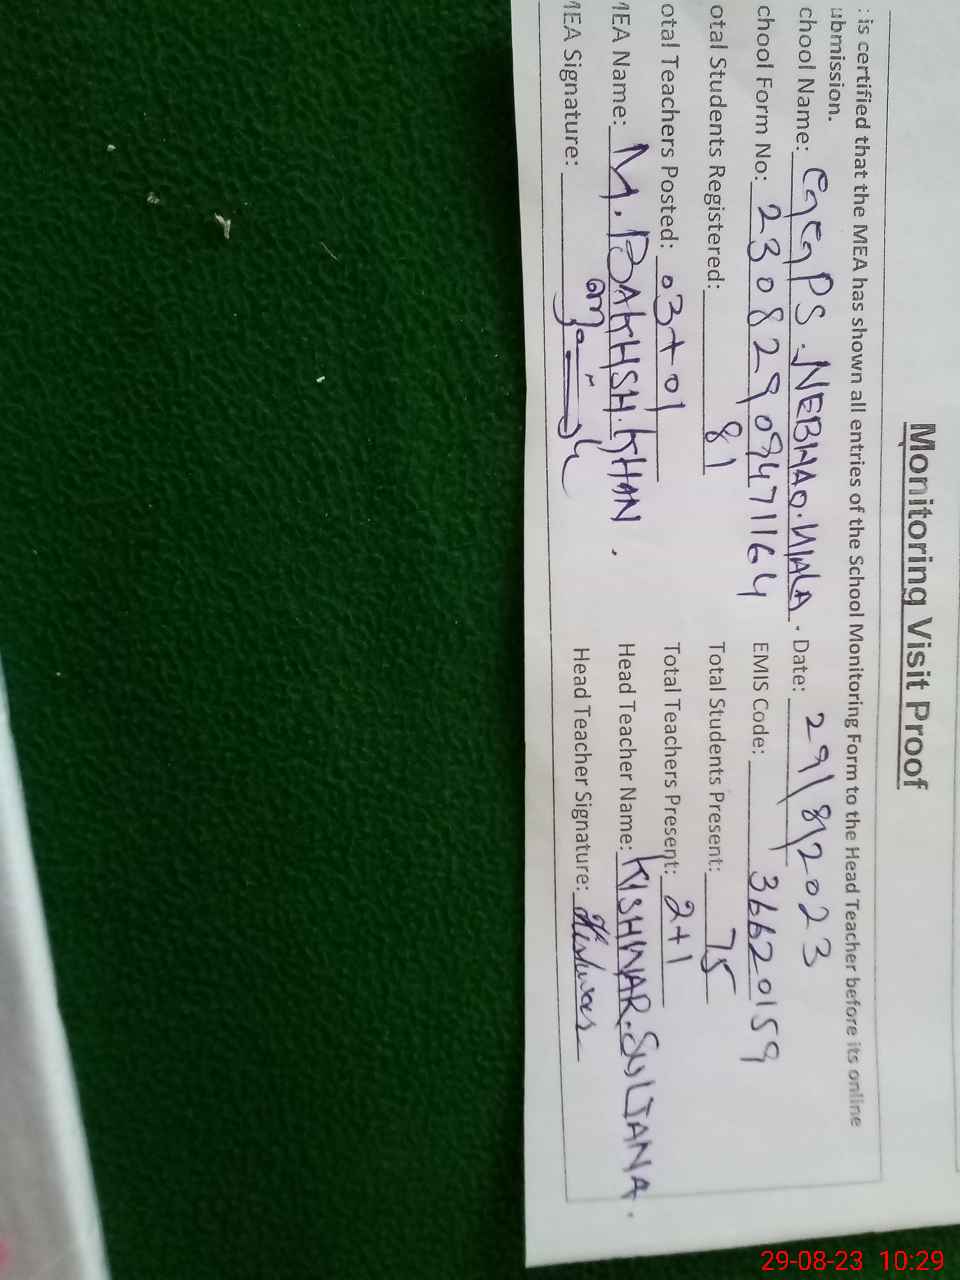 Monitoring Visit Proof
: is certified that the MEA has shown all entries of the School Monitoring Form to the Head Teacher before its online
ubmission.
chool Name: GGPS. Date: 29/8/2023
chool Form No: EMIS Code: 36620159
otal Students Registered: 81 Total Students Present: 75
otal Teachers Posted: 03+01 Total Teachers Present: 2+1
MEA Name: M. BAKHSH. KHAN. Head Teacher Name: KISHWAR. SULTANA.
MEA Signature: Head Teacher Signature: Kishwar
29-08-23 10:29